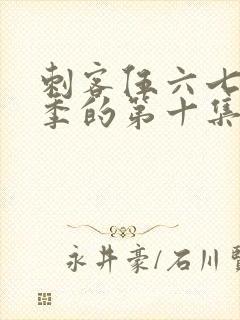 刺客伍六七
季的第十集
永井豪/石川賢